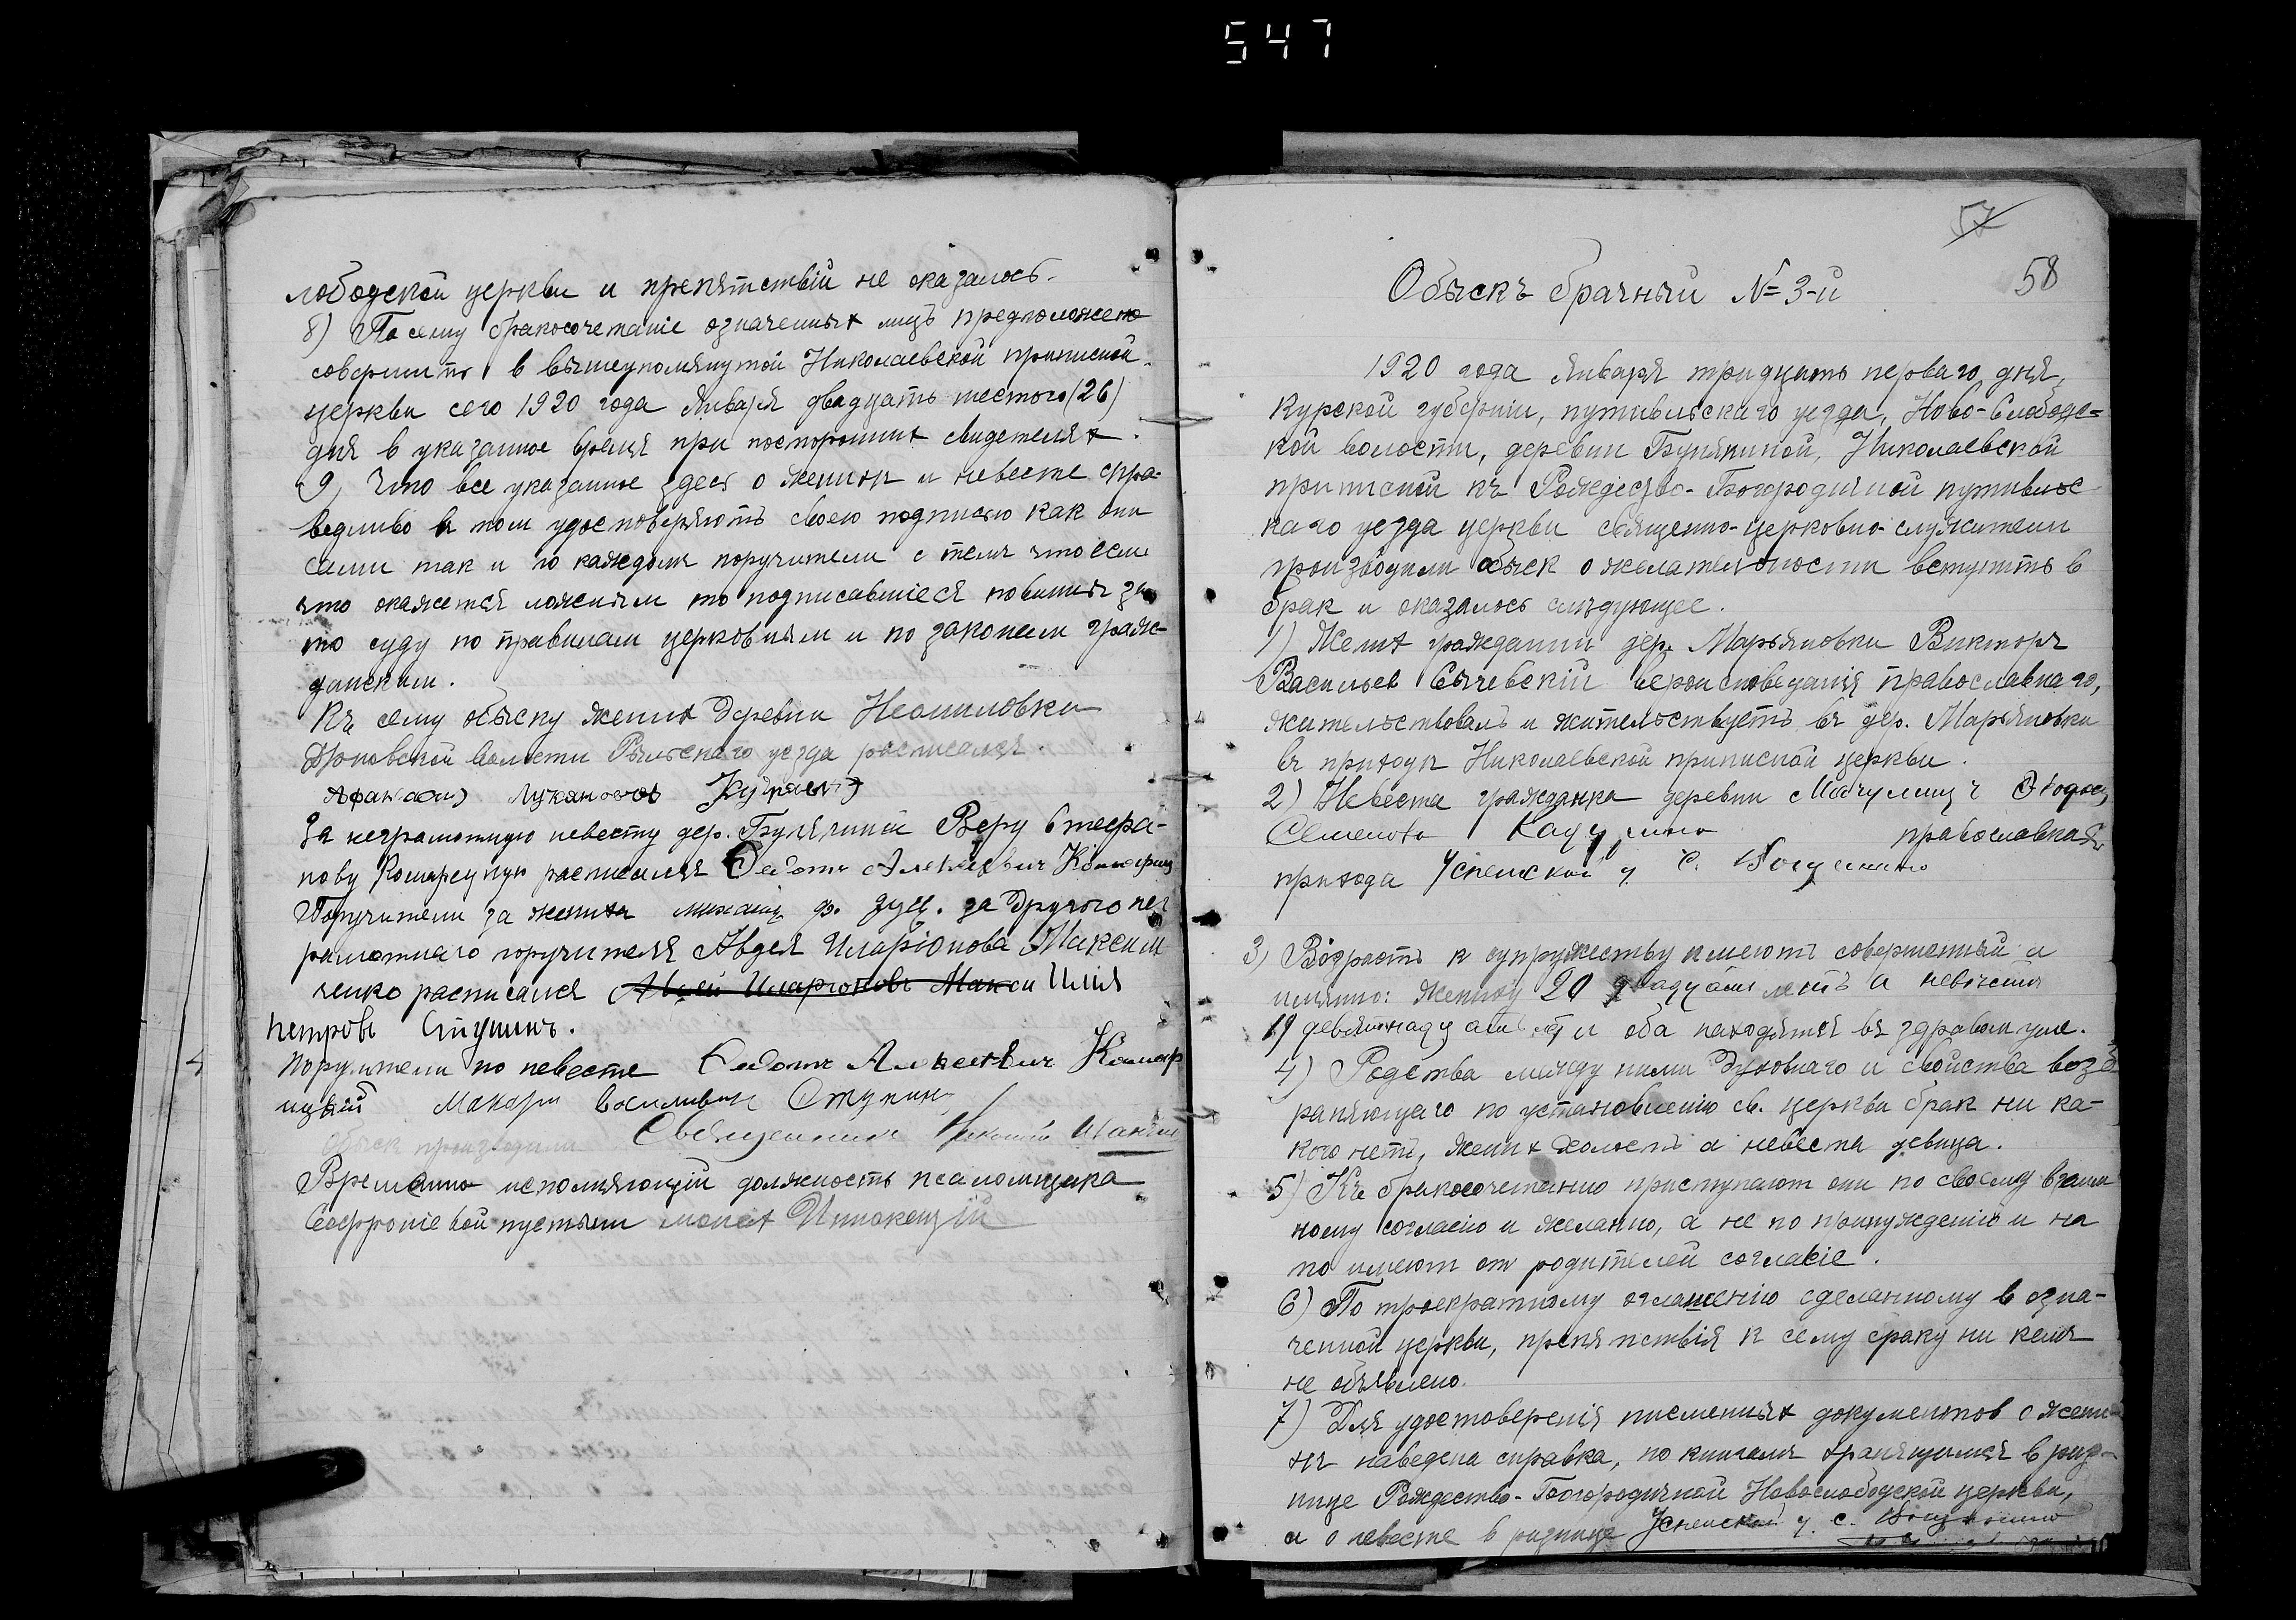 547
лободской церкви и препятствій не оказалось.
8) По сему бракосочетаніе означенных лицъ предположено
совершить в вышеупомянутой Николаевской приписной
церкви сего 1920 года Января двадцать шестого (26)
дня в указанное время при посторонних свидетелях.
9) Что все указанное здесь о женихѣ и невесте спра-
ведливо в том удостоверяютъ своею подписью как они
сами так и по каждомъ поручители с темъ что если
что окажется ложным то подписавшіеся повинны за
то суду по правилам церковным и по законам граж-
данским.
Къ сему обыску жених деревни Неониловки
волости Рыльскаго уезда росписался.
Лукановъ
За неграмотную невесту дер. Бунякиной Веру Стефа-
нову расписался Федотъ Алексѣевич
Поручители за жениха за другого нег
рамотнаго поручителя Авдея Иларіонова Максим
ченко расписался Авдей Иларіоновъ Макси Илія
Петровъ Ступинъ.
Поручители по невесте Федотъ Алексѣевич Комар
ицкій Макарий Ступин
Обыск производили Священникъ
Временно исполняющій должность псаломщика
Софроніевой пустыни монах Иннокентій
57
58
Обыскъ брачный № 3-й
1920 года января тридцать перваго дня,
Курской губерніи, путивльскаго уезда, Ново-Слободс=
кой волости, деревни Бунякиной, Николаевской
приписной къ Рождество-Богородичной путивльс
каго уезда церкви священно-церковно-служители
производили обыск о желательности вступить в
брак и оказалось слѣдующее.
1) Жених гражданин дер. Марьяновки Викторъ
Васильев Сычевскій вероисповеданія православнаго,
жительствовалъ и жительствуетъ въ дер. Марьяновки
въ приходѣ Николаевской приписной церкви.
2) Невеста гражданка деревни
Семенова православная,
прихода Успенской ц. с.
3) Возрастъ к супружеству имеютъ совершенный а
именно: жениху 20 двадцать летъ а невеста
19 девятнадцать и оба находятся въ здравом уме.
4) Родства между ними духовнаго и свойства возб
раняющаго по установленію св. церкви брак ни ка-
кого нетъ, жених холостъ а невеста девица.
5) Къ бракосочетанію приступают они по своему взаим
ному согласію и желанию, а не по принужденію и на
то имеют от родителей согласіе.
6) По троекратному оглашенію сделанному в озна-
ченной церкви, препятствія к сему браку ни кемъ
не объявлено.
7) Для удостоверенія писменных документов о жени-
хѣ наведена справка, по книгамъ хранящимся в риз-
нице Рождество-Богородичной Новослободской церкви,
а о невесте в ризнице Успенской ц. с.